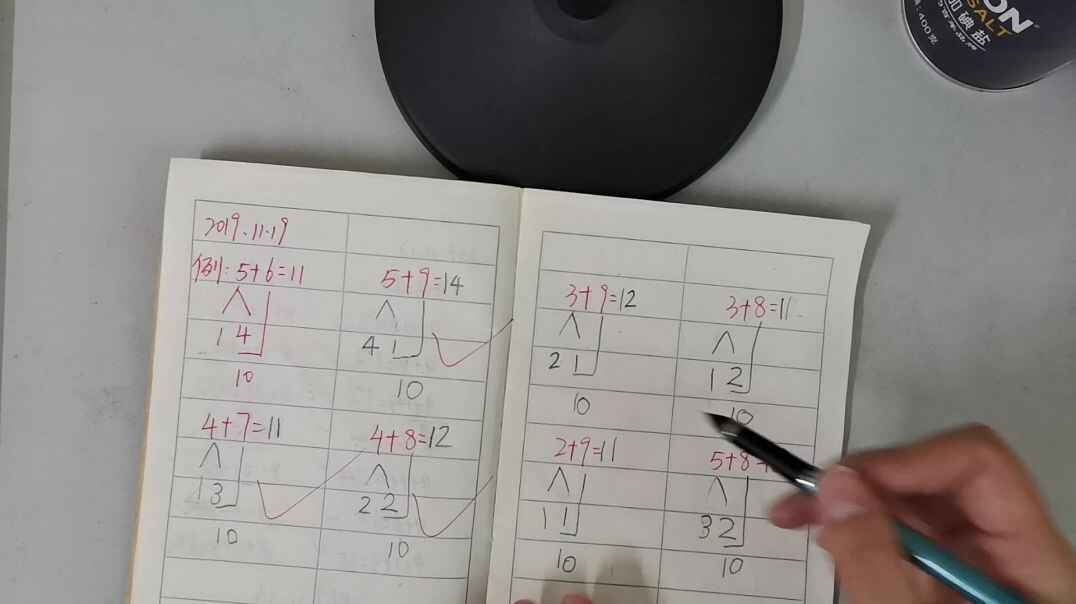 ON
SALT
加碘盐
400克
2019.11.19
例: 5+6=11
1 4
10
5+9=14
4 1
10
4+7=11
1 3
10
4+8=12
2 2
10
3+9=12
2 1
10
3+8=11
1 2
10
2+9=11
1 1
10
5+8=
3 2
10